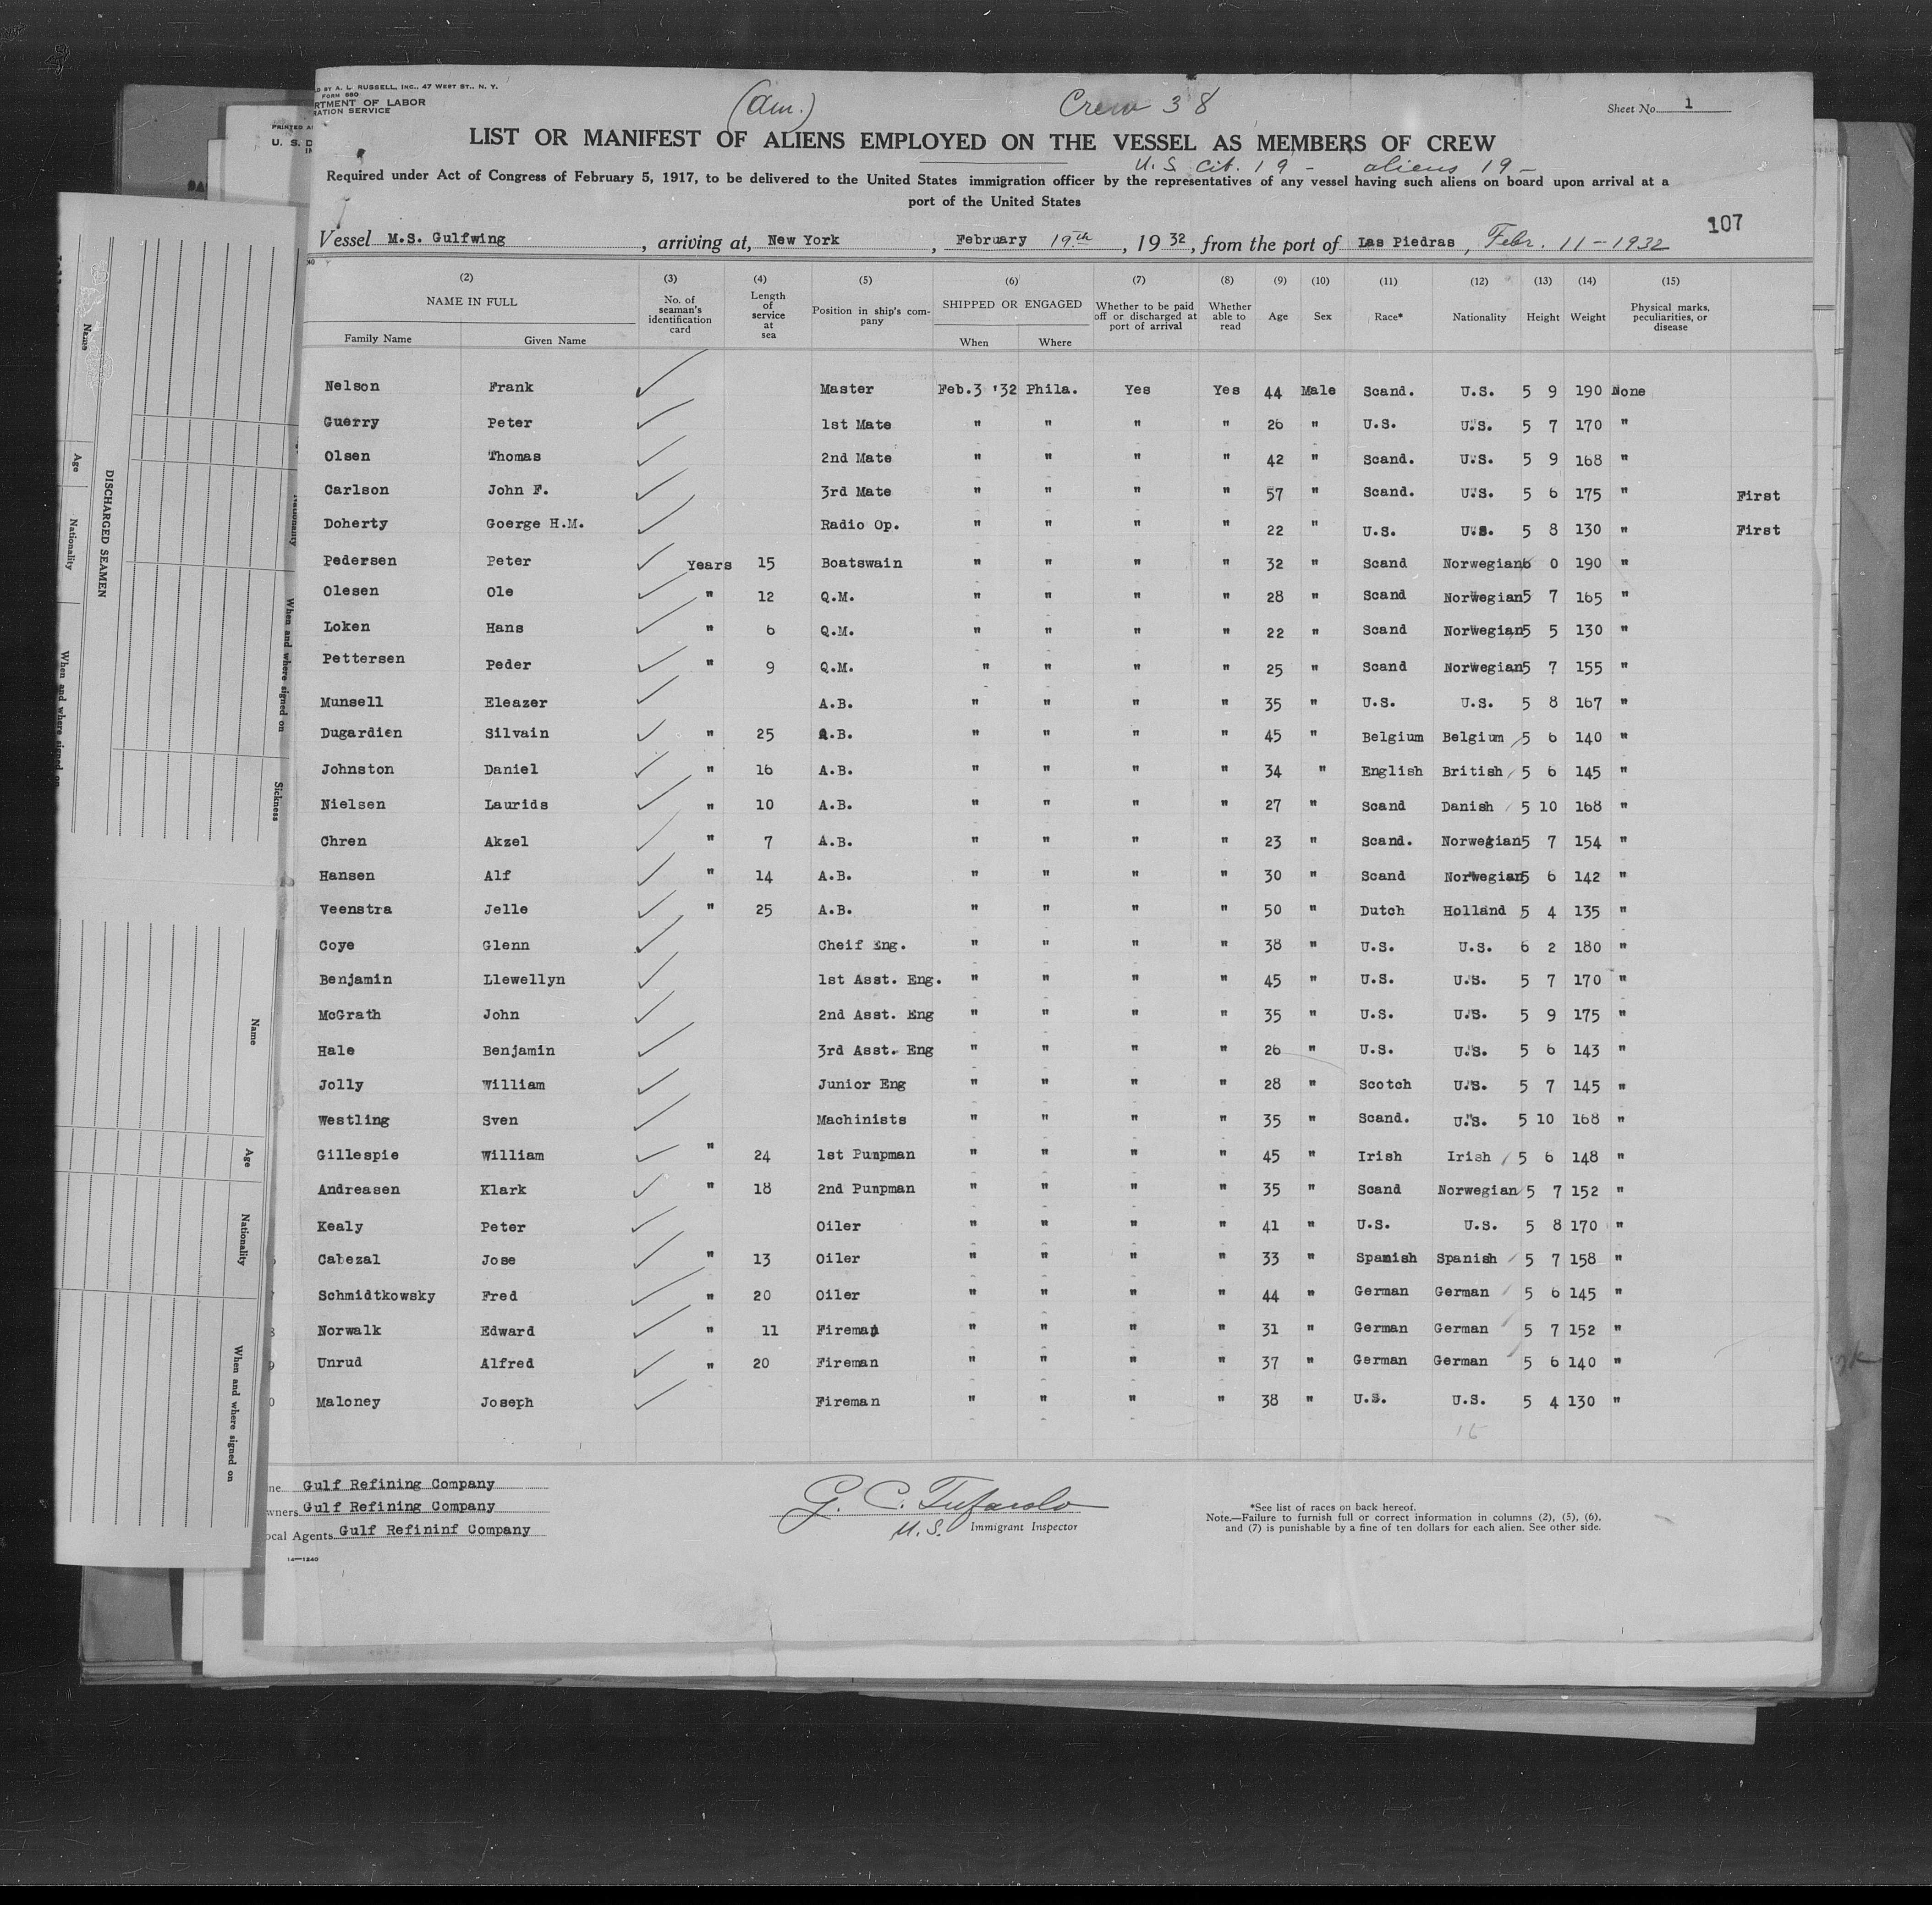 D BY A. L. RUSSELL, INC., 47 WEST ST., N. Y.
FORM 680
RTMENT OF LABOR
RATION SERVICE
PRINTED A
U. S. D
IN
(Am.)
Crew 38
Sheet No. 1
LIST OR MANIFEST OF ALIENS EMPLOYED ON THE VESSEL AS MEMBERS OF CREW
U.S cit. 19 - aliens 19 -
Required under Act of Congress of February 5, 1917, to be delivered to the United States immigration officer by the representatives of any vessel having such aliens on board upon arrival at a
port of the United States
107
Vessel M.S. Gulfwing, arriving at, New York, February 19th, 1932, from the port of Las Piedras, Febr. 11 - 1932
(2) (3) (4) (5) (6) (7) (8) (9) (10) (11) (12) (13) (14) (15)
NAME IN FULL
Family Name Given Name
No. of seaman's identification card
Length of service at sea
Position in ship's com- pany
SHIPPED OR ENGAGED
When Where
Whether to be paid off or discharged at port of arrival
Whether able to read
Age Sex Race* Nationality Height Weight
Physical marks, peculiarities, or disease
Nelson Frank Master Feb.3 '32 Phila. Yes Yes 44 Male Scand. U.S. 5 9 190 None
Guerry Peter 1st Mate " " " " 26 " U.S. U.S. 5 7 170 "
Olsen Thomas 2nd Mate " " " " 42 " Scand. U.S. 5 9 168 "
Carlson John F. 3rd Mate " " " " 57 " Scand. U.S. 5 6 175 " First
Doherty Goerge H.M. Radio Op. " " " " 22 " U.S. U.S. 5 8 130 " First
Pedersen Peter Years 15 Boatswain " " " " 32 " Scand Norwegian 6 0 190 "
Olesen Ole " 12 Q.M. " " " " 28 " Scand Norwegian 5 7 165 "
Loken Hans " 6 Q.M. " " " " 22 " Scand Norwegian 5 5 130 "
Pettersen Peder " 9 Q.M. " " " " 25 " Scand Norwegian 5 7 155 "
Munsell Eleazer A.B. " " " " 35 " U.S. U.S. 5 8 167 "
Dugardien Silvain " 25 A.B. " " " " 45 " Belgium Belgium 5 6 140 "
Johnston Daniel " 16 A.B. " " " " 34 " English British 5 6 145 "
Nielsen Laurids " 10 A.B. " " " " 27 " Scand Danish 5 10 168 "
Chren Akzel " 7 A.B. " " " " 23 " Scand. Norwegian 5 7 154 "
Hansen Alf " 14 A.B. " " " " 30 " Scand Norwegian 5 6 142 "
Veenstra Jelle " 25 A.B. " " " " 50 " Dutch Holland 5 4 135 "
Coye Glenn Cheif Eng. " " " " 38 " U.S. U.S. 6 2 180 "
Benjamin Llewellyn 1st Asst. Eng. " " " " 45 " U.S. U.S. 5 7 170 "
McGrath John 2nd Asst. Eng " " " " 35 " U.S. U.S. 5 9 175 "
Hale Benjamin 3rd Asst. Eng " " " " 26 " U.S. U.S. 5 6 143 "
Jolly William Junior Eng " " " " 28 " Scotch U.S. 5 7 145 "
Westling Sven Machinists " " " " 35 " Scand. U.S. 5 10 168 "
Gillespie William " 24 1st Pumpman " " " " 45 " Irish Irish 5 6 148 "
Andreasen Klark " 18 2nd Pumpman " " " " 35 " Scand Norwegian 5 7 152 "
Kealy Peter Oiler " " " " 41 " U.S. U.S. 5 8 170 "
Cabezal Jose " 13 Oiler " " " " 33 " Spanish Spanish 5 7 158 "
Schmidtkowsky Fred " 20 Oiler " " " " 44 " German German 5 6 145 "
Norwalk Edward " 11 Fireman " " " " 31 " German German 5 7 152 "
Unrud Alfred " 20 Fireman " " " " 37 " German German 5 6 140 "
Maloney Joseph Fireman " " " " 38 " U.S. U.S. 5 4 130 "
15
ne Gulf Refining Company
wners Gulf Refining Company
ocal Agents Gulf Refininf Company
14—1240
G. C. Tufarolo
U.S. Immigrant Inspector
*See list of races on back hereof.
Note.—Failure to furnish full or correct information in columns (2), (5), (6),
and (7) is punishable by a fine of ten dollars for each alien. See other side.
DISCHARGED SEAMEN
Name
Age
Nationality
When and where signed on
When and where signed on
Sickness
Name
Age
Nationality
When and where signed on